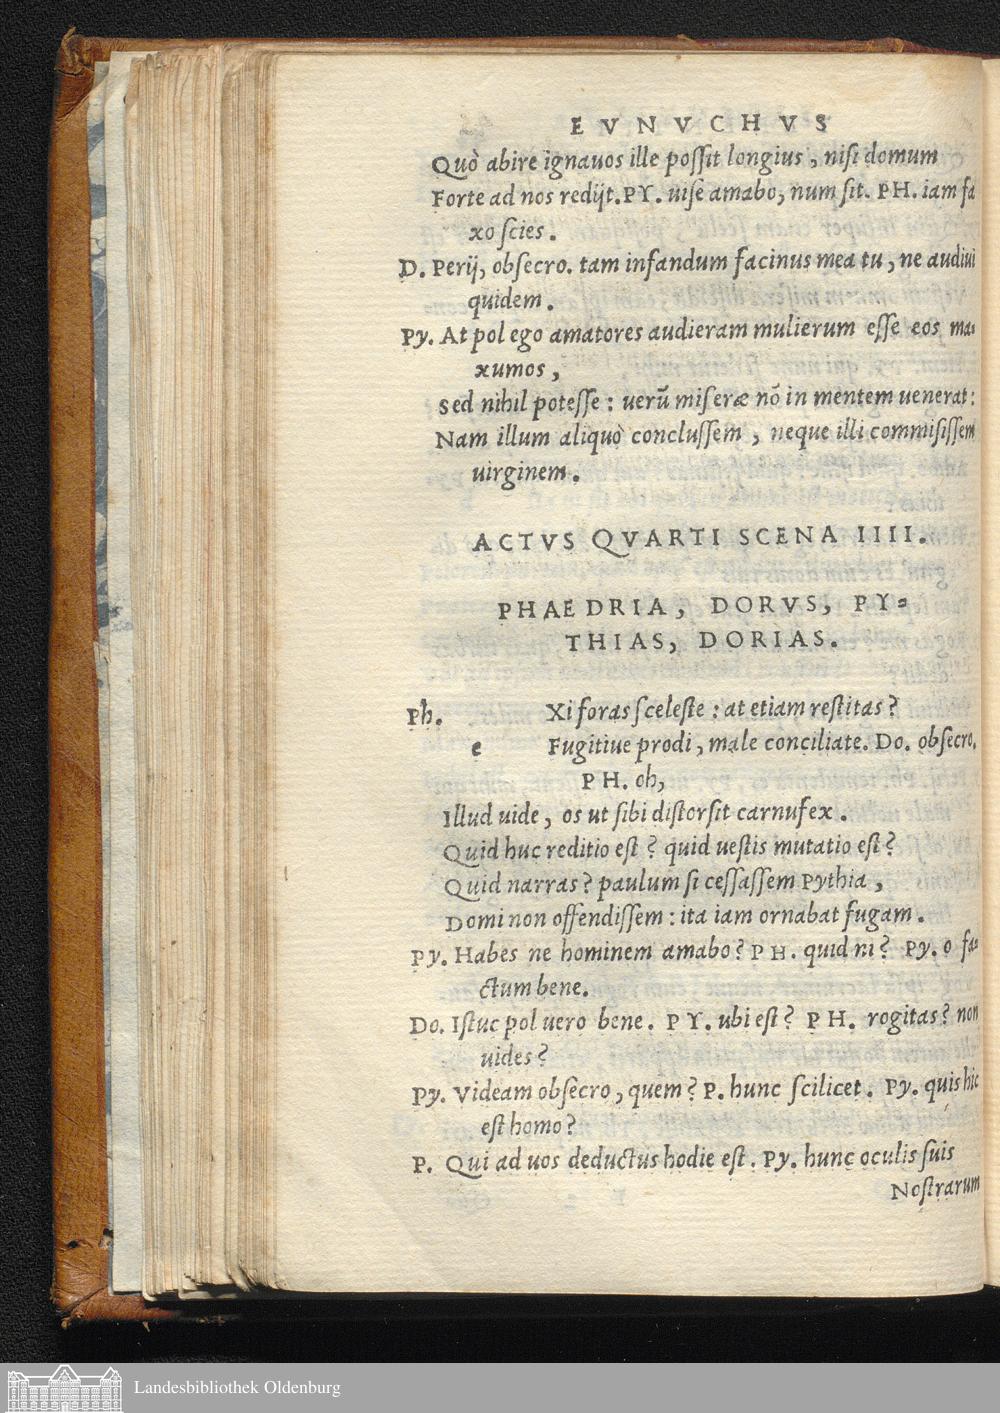 EVNVCHVS
Quò abire ignauos ille possit longius, nisi domum
Forte ad nos redijt. PY. uise amabo, num sit. PH. iam fa
xo scies.
D. Perij, obsecro. tam infandum facinus mea tu, ne audiui
quidem.
Py. At pol ego amatores audieram mulierum esse eos ma=
xumos,
Sed nihil potesse: uerū miseræ nō in mentem uenerat:
Nam illum aliquò conclussem, neque illi commisissem
uirginem.
ACTVS QVARTI SCENA IIII.
PHAEDRIA, DORVS, PY=
THIAS, DORIAS.
Ph. Xi foras sceleste: at etiam restitas?
e Fugitiue prodi, male conciliate. Do. obsecro.
PH. oh,
Illud uide, os ut sibi distorsit carnufex.
Quid huc reditio est? quid uestis mutatio est?
Quid narras? paulum si cessassem Pythia,
Domi non offendissem: ita iam ornabat fugam.
Py. Habes ne hominem amabo? PH. quid ni? Py. o fa=
ctum bene.
Do. Istuc pol uero bene. PY. ubi est? PH. rogitas? non
uides?
Py. Videam obsecro, quem? P. hunc scilicet. Py. quis hic
est homo?
P. Qui ad uos deductus hodie est. Py. hunc oculis suis
Nostrarum
Landesbibliothek Oldenburg